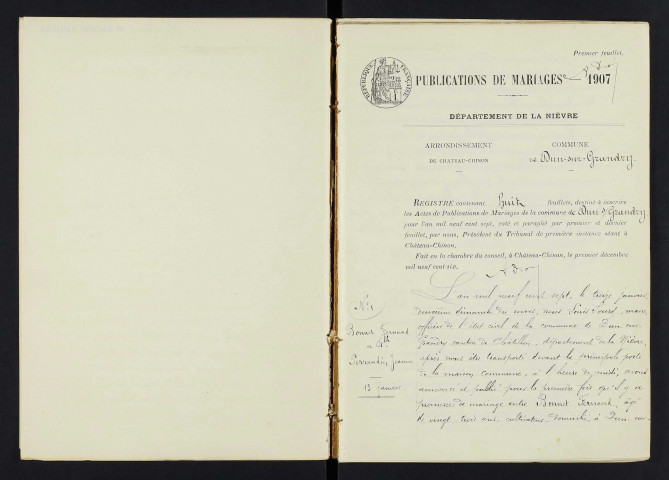 Premier feuillet.
PUBLICATIONS DE MARIAGES
1907
RÉPUBLIQUE FRANÇAISE
DÉPARTEMENT DE LA NIÈVRE
ARRONDISSEMENT
DE CHATEAU-CHINON
COMMUNE
de Dun-sur-Grandry
REGISTRE contenant huit feuillets, destiné à inscrire
les Actes de Publications de Mariages de la commune de Dun s/ Grandry
pour l'an mil neuf cent sept, coté et paraphé par premier et dernier
feuillet, par nous, Président du Tribunal de première instance séant à
Château-Chinon.
Fait en la chambre du conseil, à Château-Chinon, le premier décembre
mil neuf cent six.
N° 1
Bonnot Fernand
&
Perraudin Jeanne
13 janvier
L'an mil neuf cent sept, le treize janvier
deuxième dimanche du mois, nous Louis, maire
officier de l'état civil de la commune de Dun-sur-
Grandry canton de Châtillon, département de la Nièvre,
après nous être transporté devant la principale porte
de la maison commune, à l'heure de midi, avons
annoncé et publié pour la première fois qu'il y a
promesse de mariage entre Bonnot Fernand, âgé
de vingt-trois ans, cultivateur, domicilié à Dun-sur-